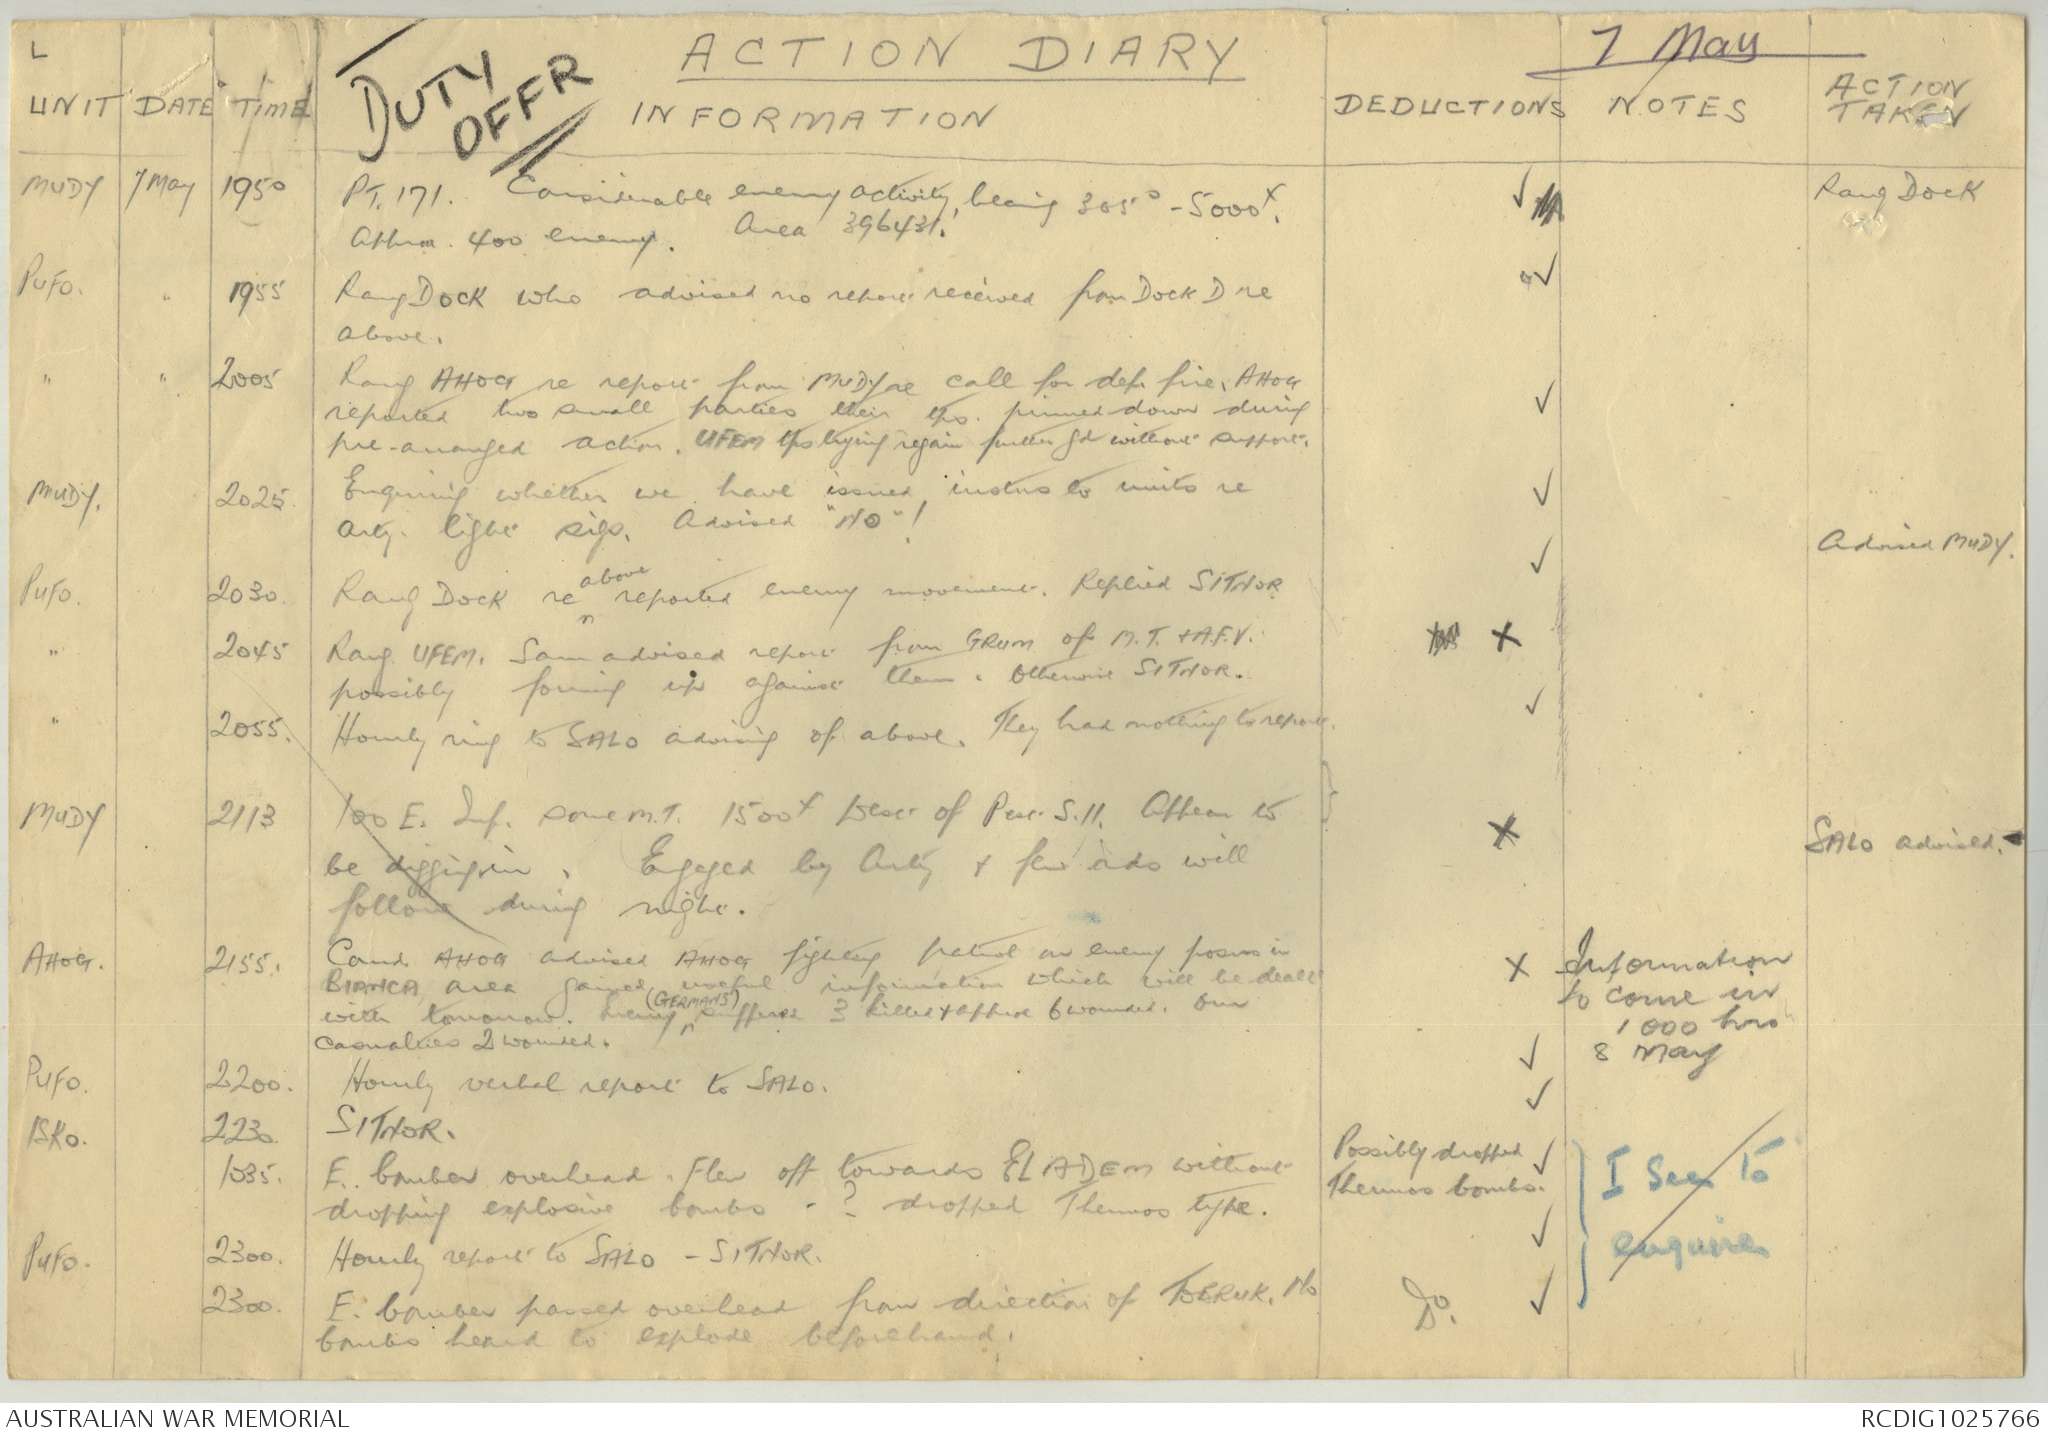 L
DUTY OFFR
ACTION DIARY
7 May
UNIT DATE TIME INFORMATION DEDUCTIONS NOTES ACTION TAKEN
MUDY 7 May 1950 PT. 171. Considerable enemy activity, bearing 305° - 5000x. ✓ Rang DOCK
Approx. 400 enemy. Area 396431.
PUFO. " 1955 Rang DOCK who advised no report received from DOCK D re ✓
above.
" " 2005 Rang AHOG re report from MUDY re call for def. fire. AHOG
reported two small parties their tps. pinned down during ✓
pre-arranged action. UFEM tps trying regain further gd without support.
MUDY. 2025. Enquiring whether we have issued instns to units re ✓
arty. light sigs. Advised "NO"! Advised MUDY.
PUFO. 2030. Rang DOCK re above reported enemy movement. Replied SITNOR ✓
" 2045 Rang UFEM. Sam advised report from GRUM of M.T. + A.F.V. X
possibly forming up against them. Otherwise SITNOR.
" 2055. Hourly ring to SALO advising of above. They had nothing to report. ✓
MUDY 2113 100 E. Inf. some M.T. 1500x West of Post S.11. Appear to X SALO advised.
be digging in. Engaged by Arty & few rds will
follow during night.
AHOG. 2155. Comd. AHOG advised AHOG fighting patrol on enemy posns in X Information
BIANCA area gained useful information which will be dealt to come in
with tomorrow. Enemy (GERMANS) suffered 3 killed & approx 6 wounded. Our 1000 hrs
casualties 2 wounded. 8 May
PUFO. 2200. Hourly verbal report to SALO. ✓
BKO. 2230. SITNOR. ✓
1035. E. bomber overhead. Flew off towards EL ADEM without Possibly dropped ✓ I See to
dropping explosive bombs - ? dropped Thermos type. Thermos bombs. enquire
PUFO. 2300. Hourly report to SALO - SITNOR. ✓
2300. E. bomber passed overhead from direction of TOBRUK. No Do. ✓
bombs heard to explode beforehand.
AUSTRALIAN WAR MEMORIAL RCDIG1025766